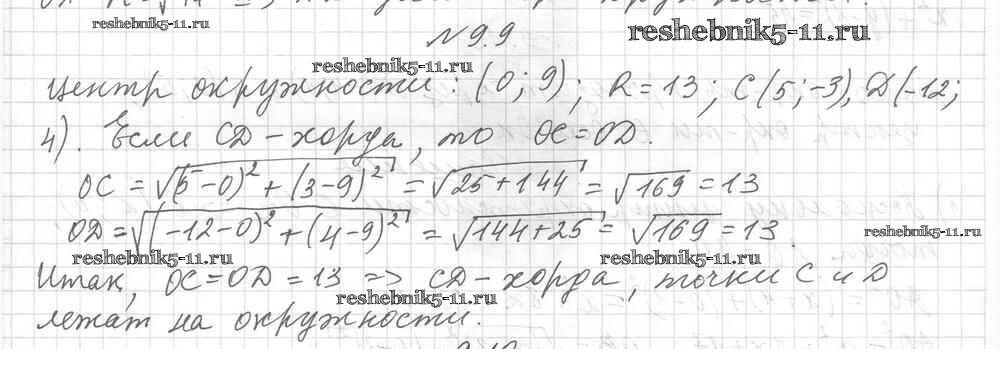 reshebnik5-11.ru
№ 9.9
reshebnik5-11.ru
reshebnik5-11.ru
Центр окружности: (0; 9); R = 13; C(5; -3), D(-12;
4). Если CD - хорда, то OC = OD.
OC = √(5-0)² + (3-9)² = √25+144 = √169 = 13
OD = √(-12-0)² + (4-9)² = √144+25 = √169 = 13.
reshebnik5-11.ru
reshebnik5-11.ru
reshebnik5-11.ru
Итак, OC = OD = 13 => CD - хорда, точки C и D
reshebnik5-11.ru
лежат на окружности.